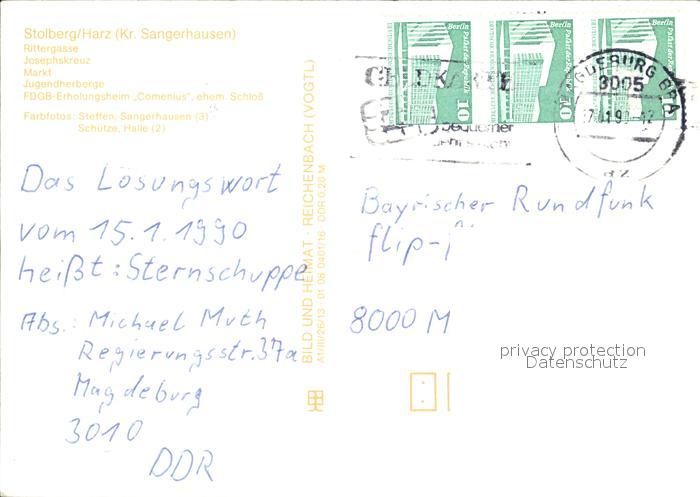 Stolberg/Harz (Kr. Sangerhausen)
Rittergasse
Josephskreuz
Markt
Jugendherberge
FDGB-Erholungsheim „Comenius", ehem. Schloß
Farbfotos: Steffen, Sangerhausen (3)
Schütze, Halle (2)
Das Lösungswort
vom 15.1.1990
heißt: Sternschuppe
Abs.: Michael Muth
Regierungsstr. 37a
Magdeburg
3010
DDR
BILD UND HEIMAT · REICHENBACH (VOGTL)
A1/III/26/13 01 08 0401/16 DDR 0,20 M
Berlin Palast der Republik
10
Berlin Palast der Republik
10
Berlin
GELDKARTE
bequemer
MAGDEBURG BPA
3005
az
Bayrischer Rundfunk
flip-
8000 M
privacy protection
Datenschutz